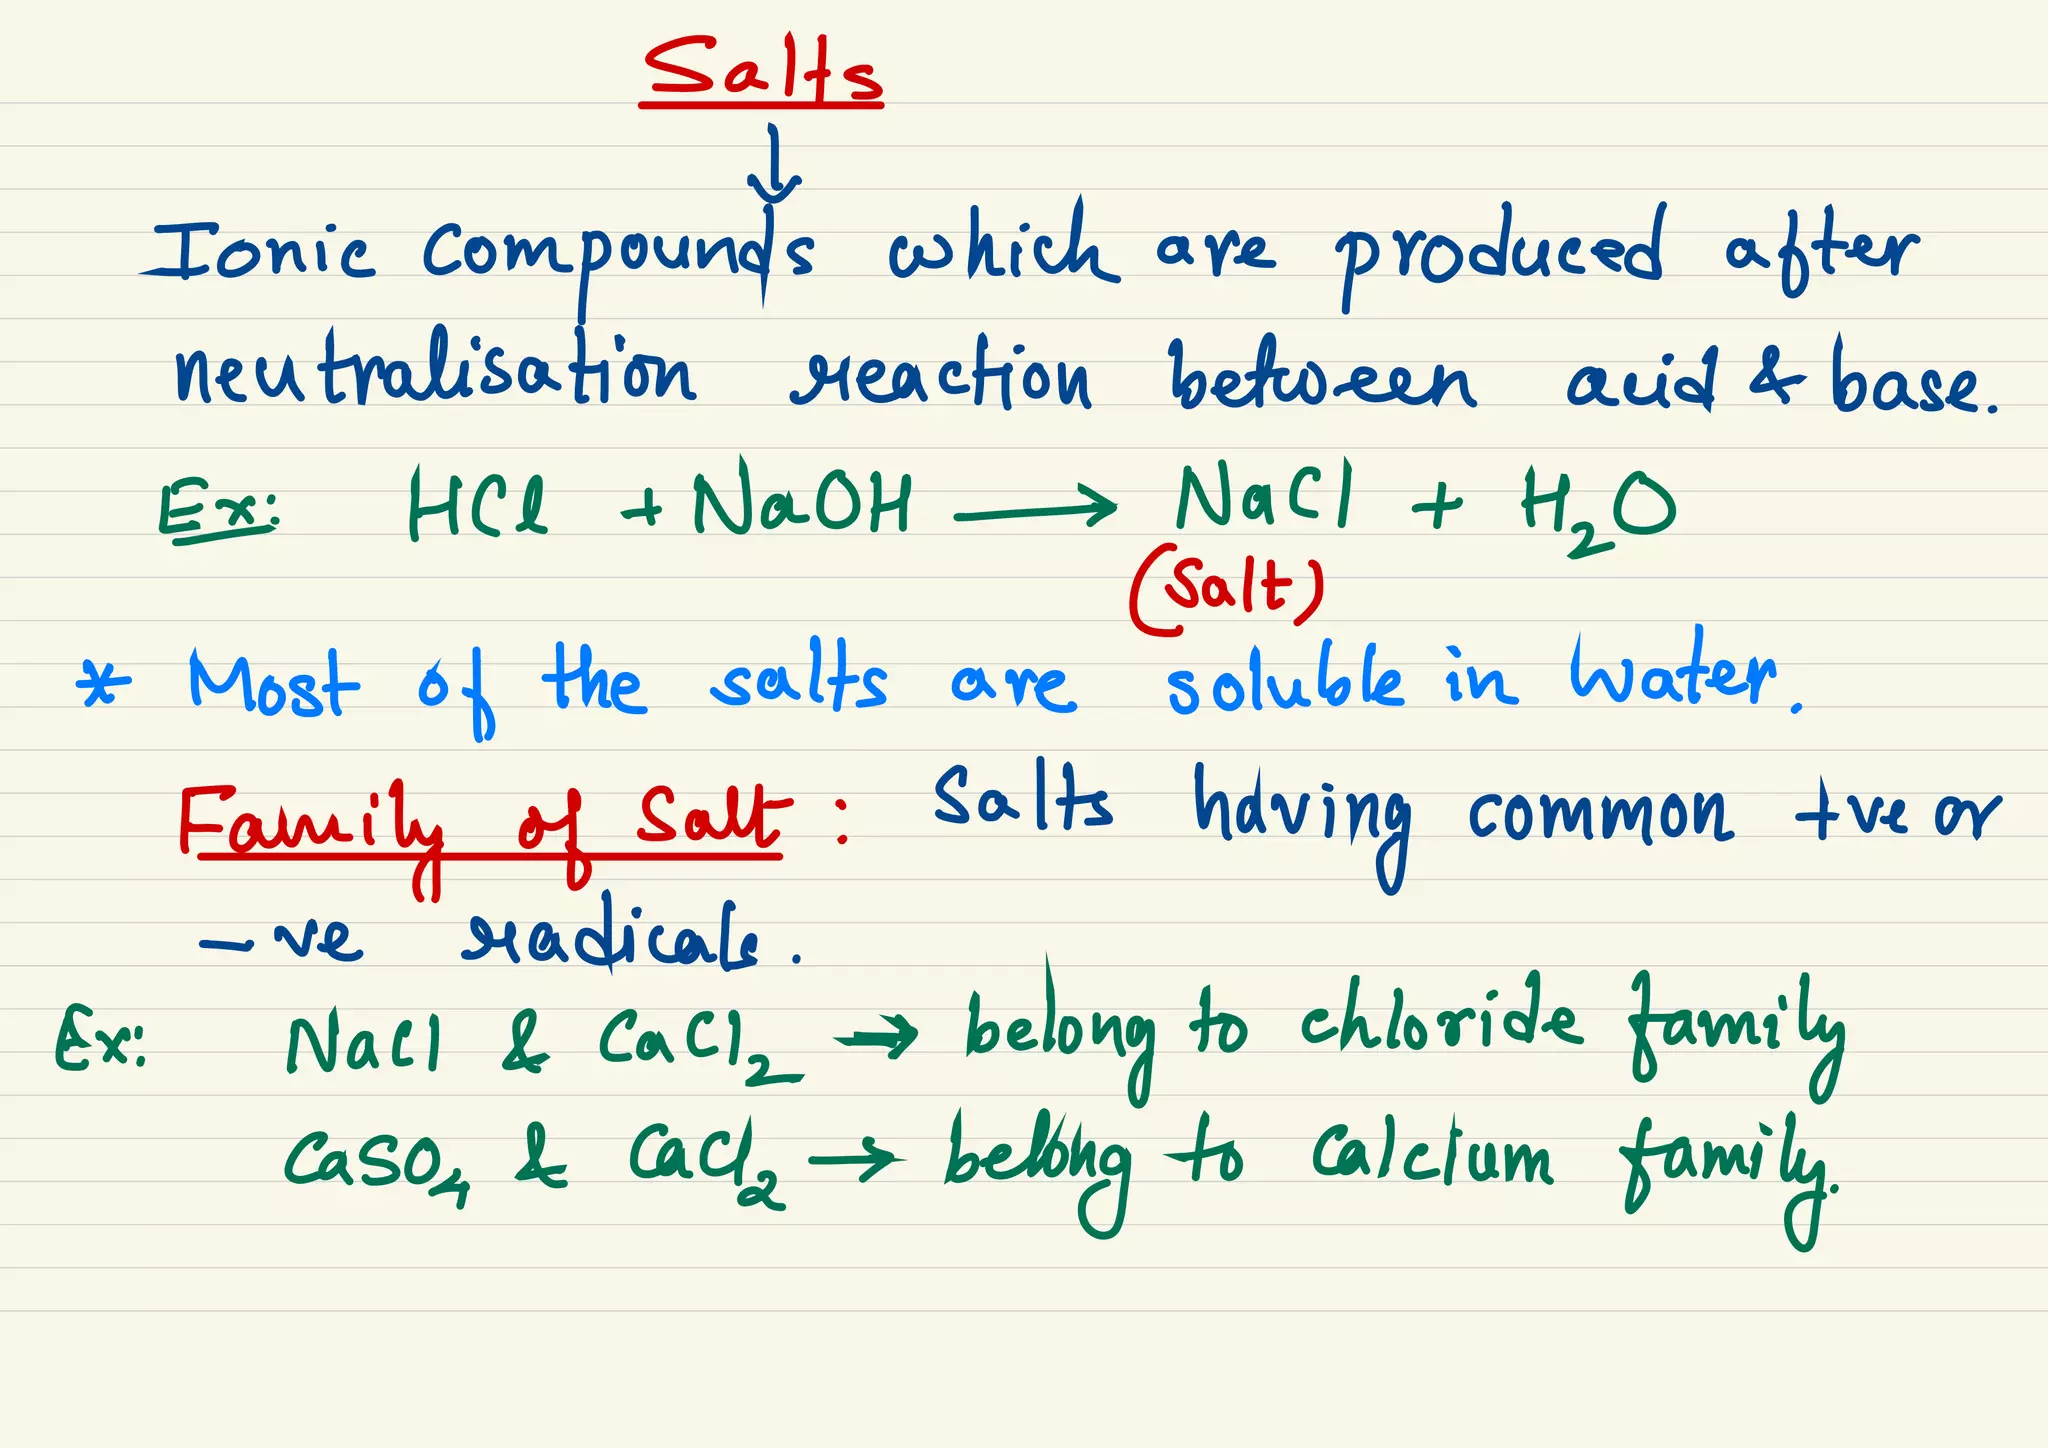 Salts
↓
Ionic compounds which are produced after
neutralisation reaction between acid & base.
Ex: HCl + NaOH ⟶ NaCl + H₂O
(salt)
* Most of the salts are soluble in water.
Family of Salt : Salts having common +ve or
-ve radicals.
Ex: NaCl & CaCl₂ → belong to chloride family
CaSO₄ & CaCl₂ → belong to calcium family.